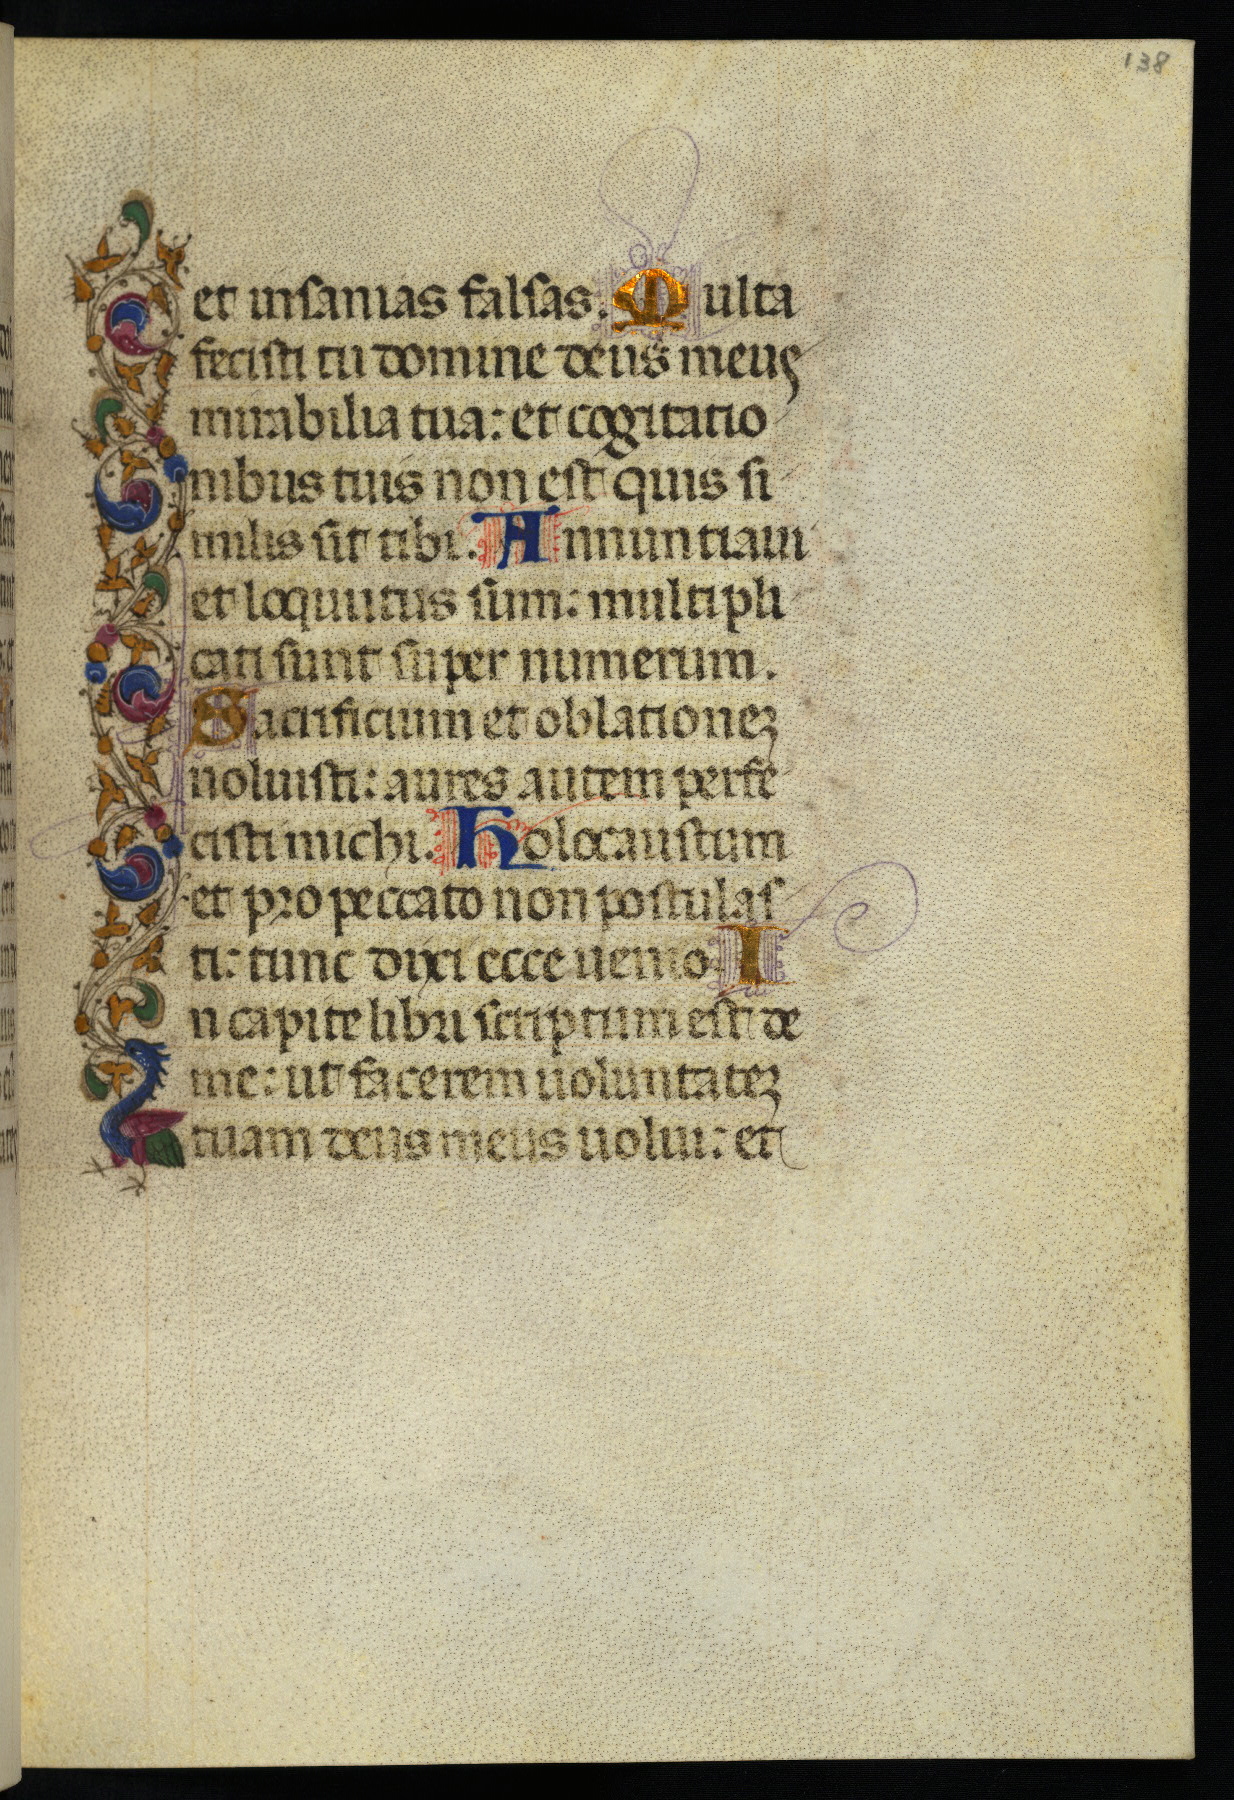 138
et insanias falsas. Multa
fecisti tu domine deus meus
mirabilia tua: et cogitatio
nibus tuis non est quis si
milis sit tibi. Annuntiaui
et loquutus sum: multipli
cati sunt super numerum.
Sacrificium et oblationeʒ
noluisti: aures autem perfe
cisti michi. Holocaustum
et pro peccato non postulas
ti: tunc dixi ecce uenio. I
n capite libri scriptum est de
me: ut facerem uoluntateʒ
tuam deus meus uolui: et